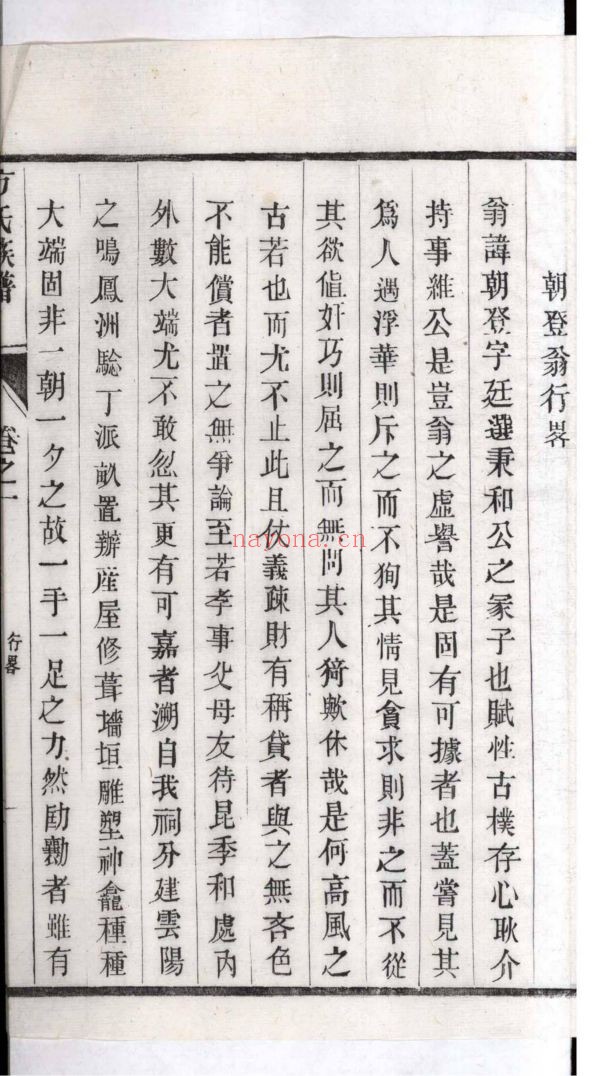 朝登翁行畧
翁諱朝登字廷選秉和公之冢子也賦性古樸存心耿介
持事維公是豈翁之虛譽哉是固有可據者也蓋嘗見其
爲人遇浮華則斥之而不狥其情見貪求則非之而不從
其欲値奸巧則屈之而無問其人猗歟休哉是何高風之
古若也而尤不止此且仗義疎財有稱貸者與之無吝色
不能償者置之無爭論至若孝事父母友待昆季和處內
外數大端尤不敢忽其更有可嘉者溯自我祠分建雲陽
之鳴鳳洲騐丁派畝置辦産屋修葺墻垣雕塑神龕種種
大端固非一朝一夕之故一手一足之力然勷者雖有
方氏族譜
卷之一
行畧
nayona.cn